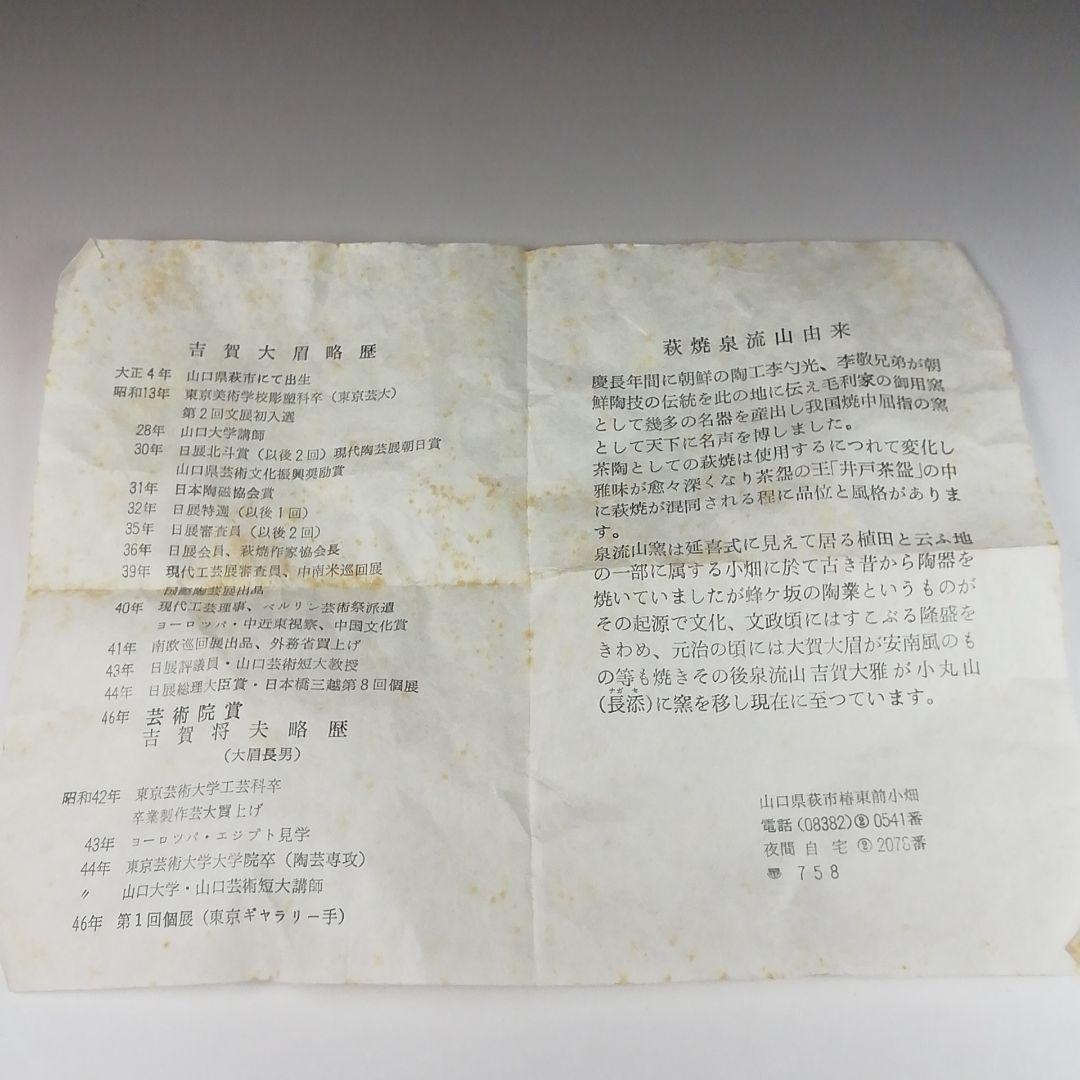 吉賀大眉略歴
大正4年 山口県萩市にて出生
昭和13年 東京美術学校彫塑科卒（東京芸大）
第2回文展初入選
28年 山口大学講師
30年 日展北斗賞（以後2回）現代陶芸展朝日賞
山口県芸術文化振興奨励賞
31年 日本陶磁協会賞
32年 日展特選（以後1回）
35年 日展審査員（以後2回）
36年 日展会員、萩焼作家協会長
39年 現代工芸展審査員、中南米巡回展
国際陶芸展出品
40年 現代工芸理事、ベルリン芸術祭派遣
ヨーロツパ・中近東視察、中国文化賞
41年 南欧巡回展出品、外務省買上げ
43年 日展評議員・山口芸術短大教授
44年 日展総理大臣賞・日本橋三越第8回個展
46年 芸術院賞
吉賀将夫略歴
（大眉長男）
昭和42年 東京芸術大学工芸科卒
卒業製作芸大買上げ
43年 ヨーロツパ・エジプト見学
44年 東京芸術大学大学院卒（陶芸専攻）
〃 山口大学・山口芸術短大講師
46年 第1回個展（東京ギヤラリー手）
萩焼泉流山由来
慶長年間に朝鮮の陶工李勺光、李敬兄弟が朝
鮮陶技の伝統を此の地に伝え毛利家の御用窯
として幾多の名器を産出し我国焼中屈指の窯
として天下に名声を博しました。
茶陶としての萩焼は使用するにつれて変化し
雅味が愈々深くなり茶盌の王「井戸茶盌」の中
に萩焼が混同される程に品位と風格がありま
す。
泉流山窯は延喜式に見えて居る植田と云ふ地
の一部に属する小畑に於て古き昔から陶器を
焼いていましたが蜂ケ坂の陶業というものが
その起源で文化、文政頃にはすこぶる隆盛を
きわめ、元治の頃には大賀大眉が安南風のも
の等も焼きその後泉流山吉賀大雅が小丸山
（長添）に窯を移し現在に至つています。
ナガセ
山口県萩市椿東前小畑
電話（08382）② 0541番
夜間 自宅 ② 2076番
〒 758